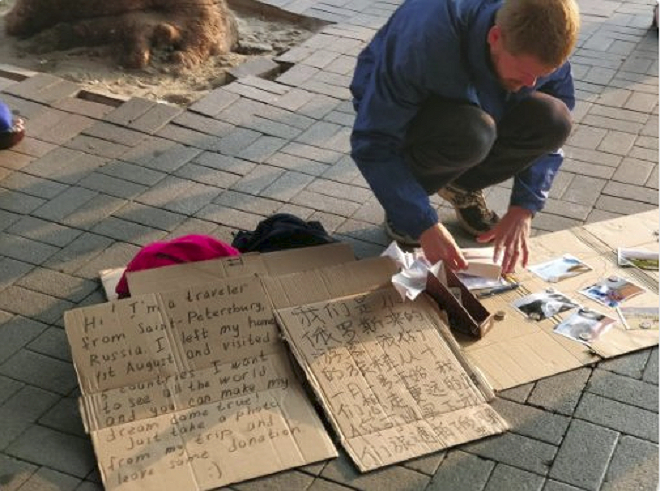 Hi ! I'm a traveler
from Saint-Petersburg,
Russia. I left my home
1st August and visited
5 countries. I want
to see all the world
and you can make my
dream came true!
Just take a photo
from my trip and
leave some donation
:)
我们是从
俄罗斯来的
游客
的旅程从
月